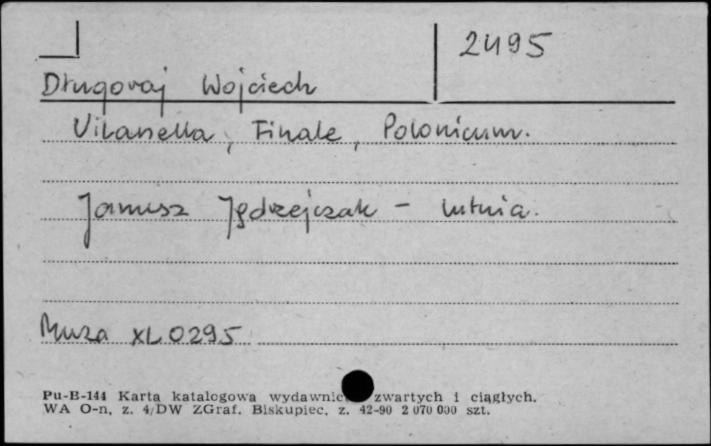 2495
Długoraj Wojciech
Vilanella, Finale, Polonicum.
Janusz Jędrzejczak – lutnia.
Muza XL0295
Pu-B-144 Karta katalogowa wydawnic zwartych i ciągłych.
WA O-n, z. 4/DW ZGraf. Biskupiec, z. 42-90 2 070 000 szt.